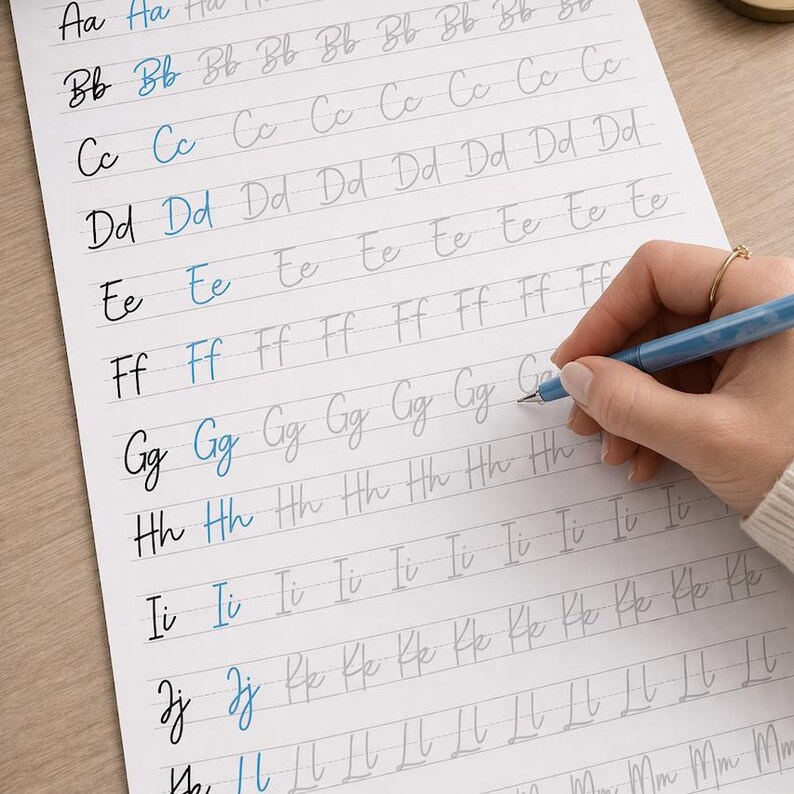 Aa Aa Aa
Bb Bb Bb Bb Bb Bb Bb Bb Bb
Cc Cc Cc Cc Cc Cc Cc Cc
Dd Dd Dd Dd Dd Dd Dd Dd
Ee Ee Ee Ee Ee Ee Ee Ee
Ff Ff Ff Ff Ff Ff Ff Ff
Gg Gg Gg Gg Gg Gg
Hh Hh Hh Hh Hh Hh Hh
Ii Ii Ii Ii Ii Ii Ii Ii Ii Ii
Jj Jj Kk Kk Kk Kk Kk Kk Kk Kk Kk
Kk Ll Ll Ll Ll Ll Ll Ll Ll Ll Ll
Mm Mm Mm Mm